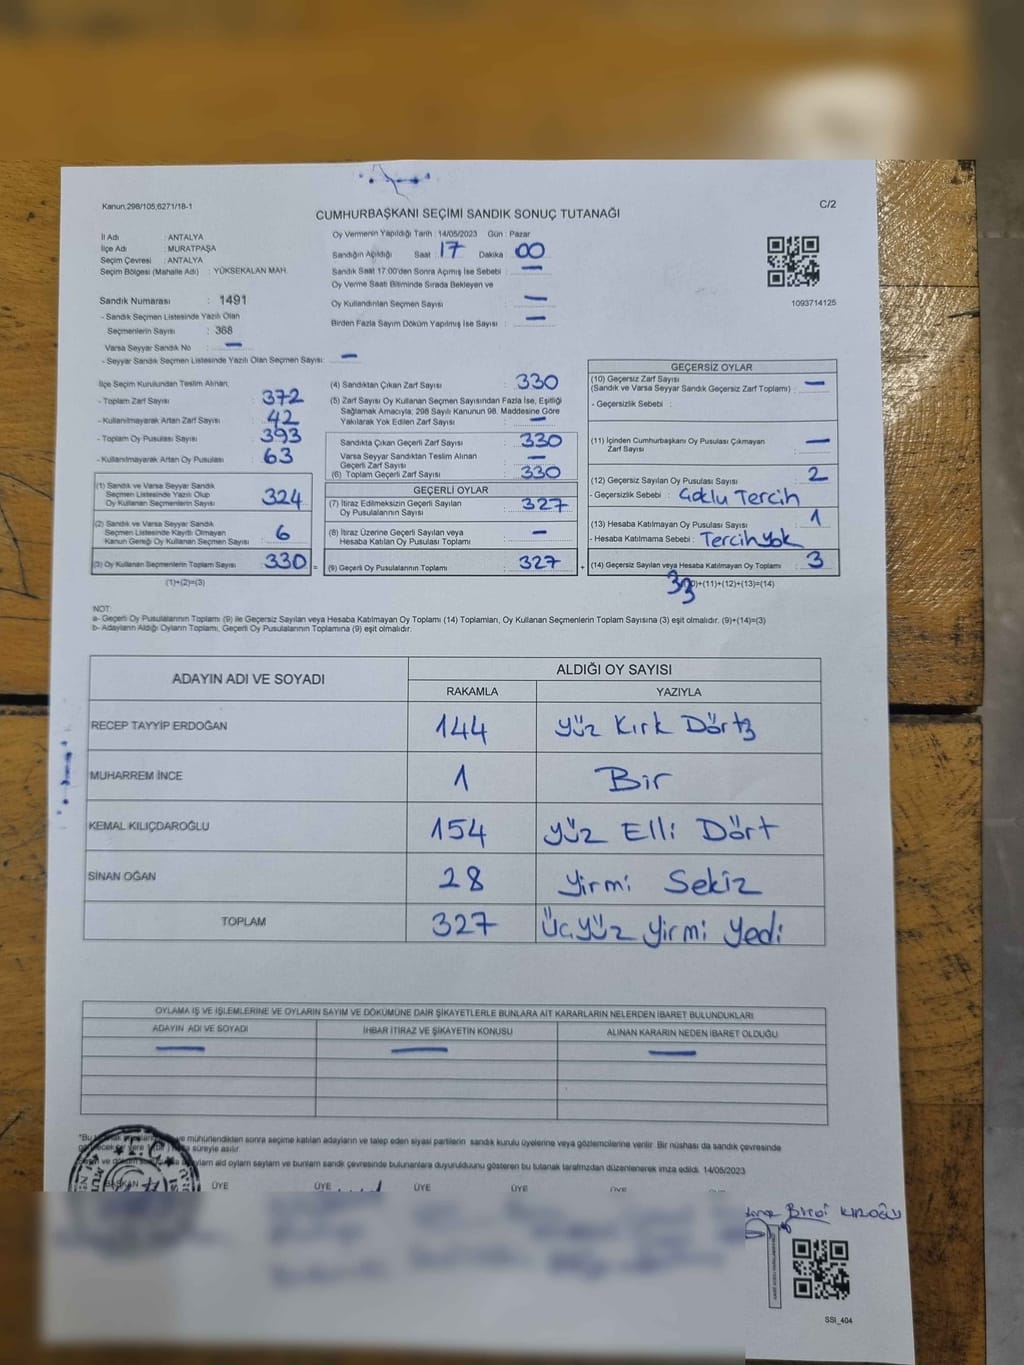 Kanun;298/105;6271/18-1
C/2
CUMHURBAŞKANI SEÇİMİ SANDIK SONUÇ TUTANAĞI
İl Adı : ANTALYA
İlçe Adı : MURATPAŞA
Seçim Çevresi : ANTALYA
Seçim Bölgesi (Mahalle Adı) : YÜKSEKALAN MAH.
Oy Vermenin Yapıldığı Tarih : 14/05/2023 Gün : Pazar
Sandığın Açıldığı Saat : 17 Dakika : 00
Sandık Saat 17:00'den Sonra Açımış İse Sebebi : —
Oy Verme Saati Bitiminde Sırada Bekleyen ve
Oy Kullandırılan Seçmen Sayısı : —
Birden Fazla Sayım Döküm Yapılmış İse Sayısı : —
1093714125
Sandık Numarası : 1491
- Sandık Seçmen Listesinde Yazılı Olan
Seçmenlerin Sayısı : 368
Varsa Seyyar Sandık No : —
- Seyyar Sandık Seçmen Listesinde Yazılı Olan Seçmen Sayısı : —
İlçe Seçim Kurulundan Teslim Alınan;
- Toplam Zarf Sayısı : 372
- Kullanılmayarak Artan Zarf Sayısı : 42
- Toplam Oy Pusulası Sayısı : 393
- Kullanılmayarak Artan Oy Pusulası : 63
(1) Sandık ve Varsa Seyyar Sandık
Seçmen Listesinde Yazılı Olup
Oy Kullanan Seçmenlerin Sayısı : 324
(2) Sandık ve Varsa Seyyar Sandık
Seçmen Listesinde Kayıtlı Olmayan
Kanun Gereği Oy Kullanan Seçmen Sayısı : 6
(3) Oy Kullanan Seçmenlerin Toplam Sayısı : 330 =
(1)+(2)=(3)
(4) Sandıktan Çıkan Zarf Sayısı : 330
(5) Zarf Sayısı Oy Kullanan Seçmen Sayısından Fazla İse, Eşitliği
Sağlamak Amacıyla; 298 Sayılı Kanunun 98. Maddesine Göre
Yakılarak Yok Edilen Zarf Sayısı : —
Sandıkta Çıkan Geçerli Zarf Sayısı : 330
Varsa Seyyar Sandıktan Teslim Alınan
Geçerli Zarf Sayısı : —
(6) Toplam Geçerli Zarf Sayısı : 330
GEÇERLİ OYLAR
(7) İtiraz Edilmeksizin Geçerli Sayılan
Oy Pusulalarının Sayısı : 327
(8) İtiraz Üzerine Geçerli Sayılan veya
Hesaba Katılan Oy Pusulası Toplamı : —
(9) Geçerli Oy Pusulalarının Toplamı : 327 +
GEÇERSİZ OYLAR
(10) Geçersiz Zarf Sayısı
(Sandık ve Varsa Seyyar Sandık Geçersiz Zarf Toplamı) : —
- Geçersizlik Sebebi :
(11) İçinden Cumhurbaşkanı Oy Pusulası Çıkmayan
Zarf Sayısı : —
(12) Geçersiz Sayılan Oy Pusulası Sayısı : 2
- Geçersizlik Sebebi : Çoklu Tercih
(13) Hesaba Katılmayan Oy Pusulası Sayısı : 1
- Hesaba Katılmama Sebebi : Tercih yok
(14) Geçersiz Sayılan veya Hesaba Katılmayan Oy Toplamı : 3
33 0)+(11)+(12)+(13)=(14)
NOT:
a- Geçerli Oy Pusulalarının Toplamı (9) ile Geçersiz Sayılan veya Hesaba Katılmayan Oy Toplamı (14) Toplamları, Oy Kullanan Seçmenlerin Toplam Sayısına (3) eşit olmalıdır. (9)+(14)=(3)
b- Adayların Aldığı Oyların Toplamı, Geçerli Oy Pusulalarının Toplamına (9) eşit olmalıdır.
ADAYIN ADI VE SOYADI
ALDIĞI OY SAYISI
RAKAMLA YAZIYLA
RECEP TAYYİP ERDOĞAN 144 Yüz Kırk Dört
MUHARREM İNCE 1 Bir
KEMAL KILIÇDAROĞLU 154 Yüz Elli Dört
SİNAN OĞAN 28 Yirmi Sekiz
TOPLAM 327 Üç Yüz Yirmi Yedi
OYLAMA İŞ VE İŞLEMLERİNE VE OYLARIN SAYIM VE DÖKÜMÜNE DAİR ŞİKAYETLERLE BUNLARA AİT KARARLARIN NELERDEN İBARET BULUNDUKLARI
ADAYIN ADI VE SOYADI İHBAR İTİRAZ VE ŞİKAYETİN KONUSU ALINAN KARARIN NEDEN İBARET OLDUĞU
— — —
ve mühürlendikten sonra seçime katılan adayların ve talep eden siyasi partilerin sandık kurulu üyelerine veya gözlemcilerine verilir. Bir nüshası da sandık çevresinde
süreyle asılır
oyların saylam ve bunların sandık çevresinde bulunanlara duyurulduunu gösteren bu tutanak tarafınzdan düzenlenerek imza edildi. 14/05/2023
BAŞKAN ÜYE ÜYE ÜYE ÜYE ÜYE
SSI_404